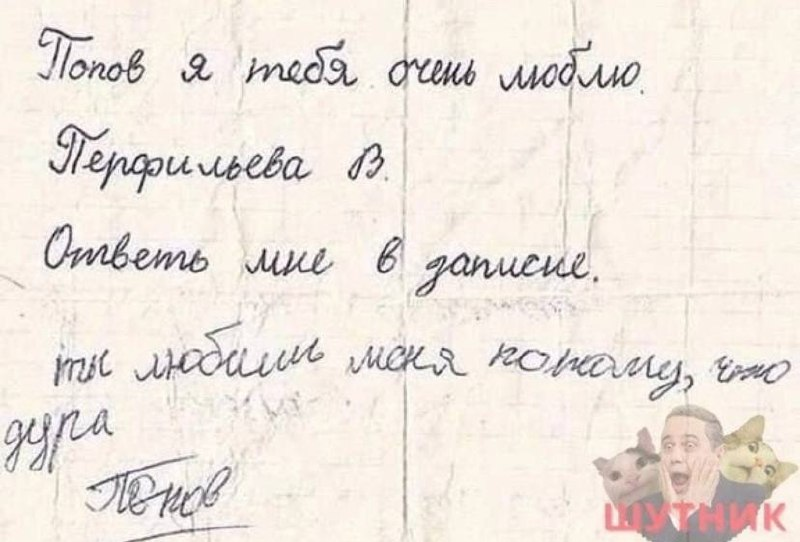 Попов я тебя очень люблю.
Перфильева В.
Ответь мне в записке.
ты любишь меня потому, что
дура
Попов
ШУТНИК